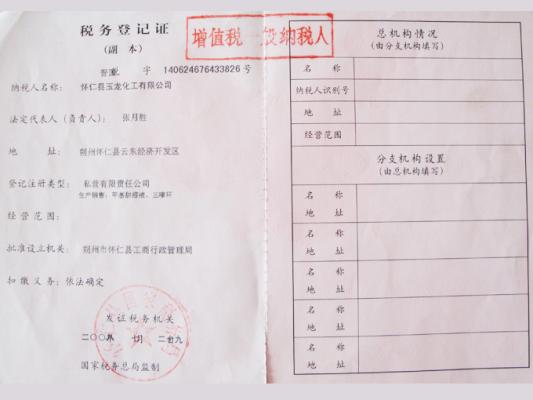 税务登记证
(副 本)
增值税一般纳税人
字 140624676433826 号
纳税人名称: 怀仁县玉龙化工有限公司
法定代表人(负责人): 张月胜
地 址: 朔州怀仁县云东经济开发区
登记注册类型: 私营有限责任公司
生产销售:甲基肼溶液、三唑环
经营范围:
批准设立机关: 朔州市怀仁县工商行政管理局
扣缴义务: 依法确定
发证税务机关
月
国家税务总局监制
总机构情况
(由分支机构填写)
名 称
纳税人识别号
地 址
经营范围
分支机构设置
(由总机构填写)
名 称
地 址
名 称
地 址
名 称
地 址
名 称
地 址
名 称
地 址